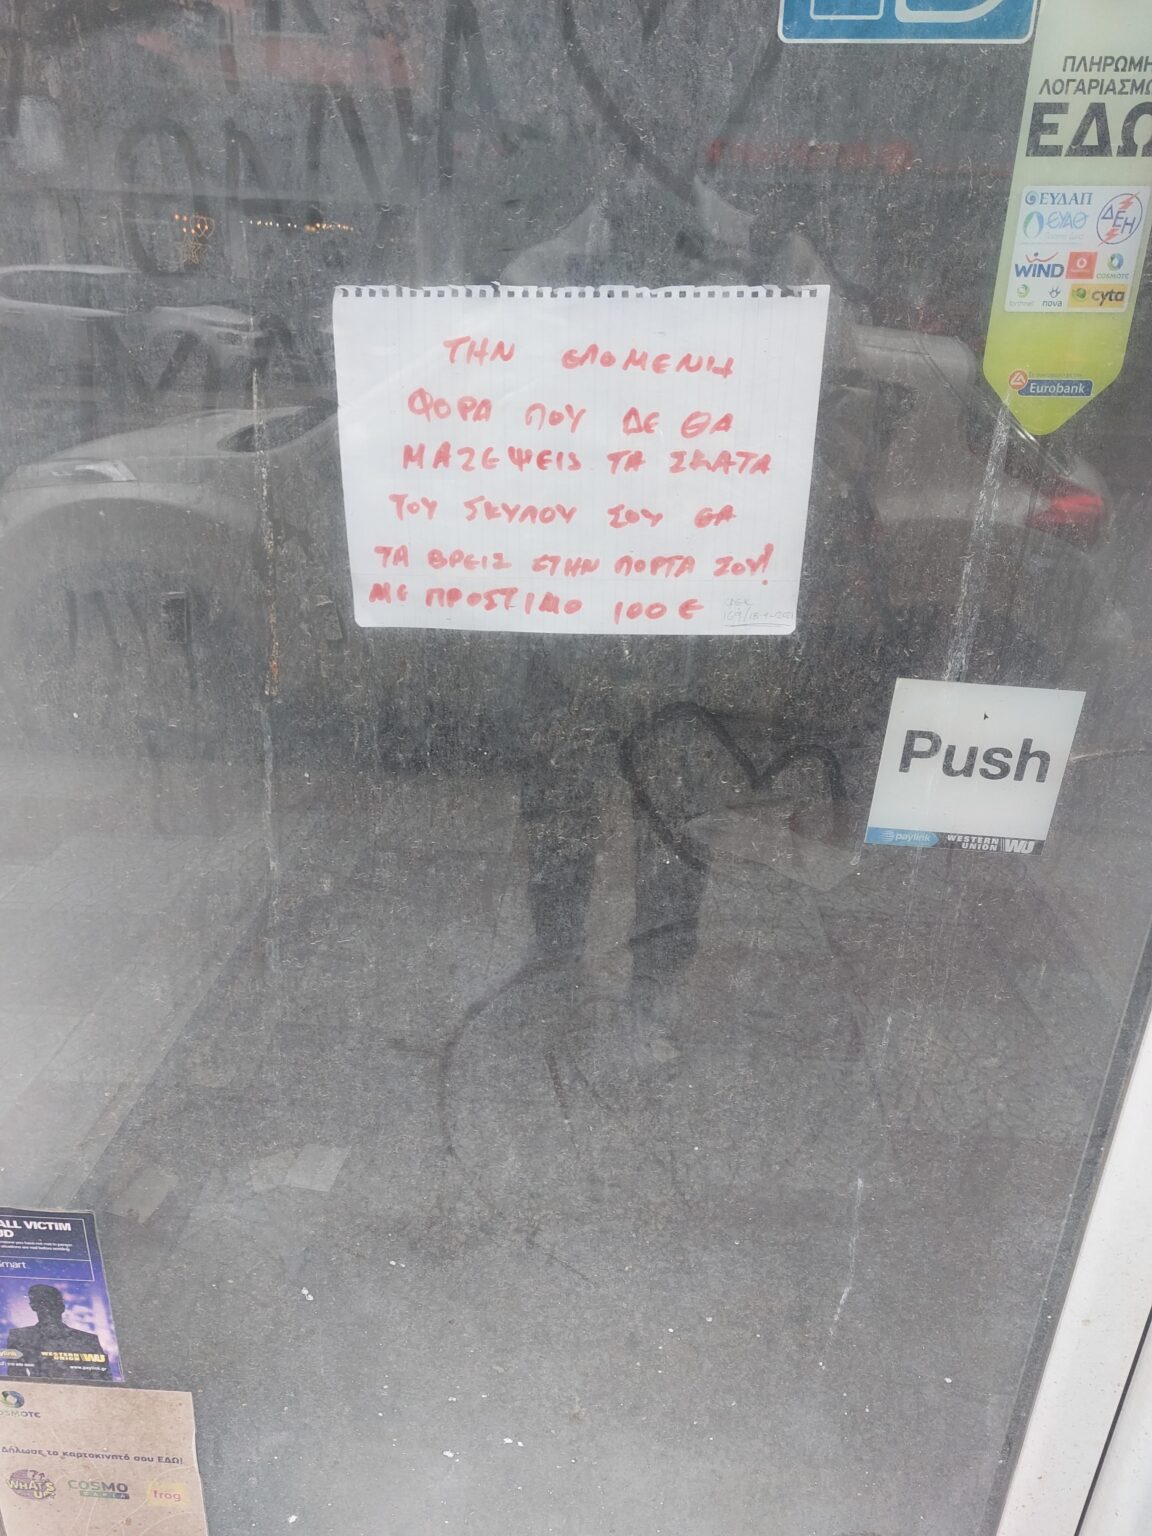 ΠΛΗΡΩΜΗ
ΛΟΓΑΡΙΑΣΜΩ
ΕΔΩ
ΕΥΔΑΠ
ΕΥΑΘ
ΔΕΗ
WIND
COSMOTE
forthnet
nova
cyta
Eurobank
ΤΗΝ ΕΠΟΜΕΝΗ
ΦΟΡΑ ΠΟΥ ΔΕ ΘΑ
ΜΑΖΕΨΕΙΣ ΤΑ ΣΚΑΤΑ
ΤΟΥ ΣΚΥΛΟΥ ΣΟΥ ΘΑ
ΤΑ ΒΡΕΙΣ ΣΤΗΝ ΠΟΡΤΑ ΣΟΥ!
ΜΕ ΠΡΟΣΤΙΜΟ 100 €
Push
paylink
WESTERN
UNION WU
ALL VICTIM
UD
Smart
WESTERN
UNION WU
www.paylink.gr
COSMOTE
Δήλωσε το καρτοκινητό σου ΕΔΩ!
WHAT'S
UP
COSMO
ΚΑΡΤΑ
frog